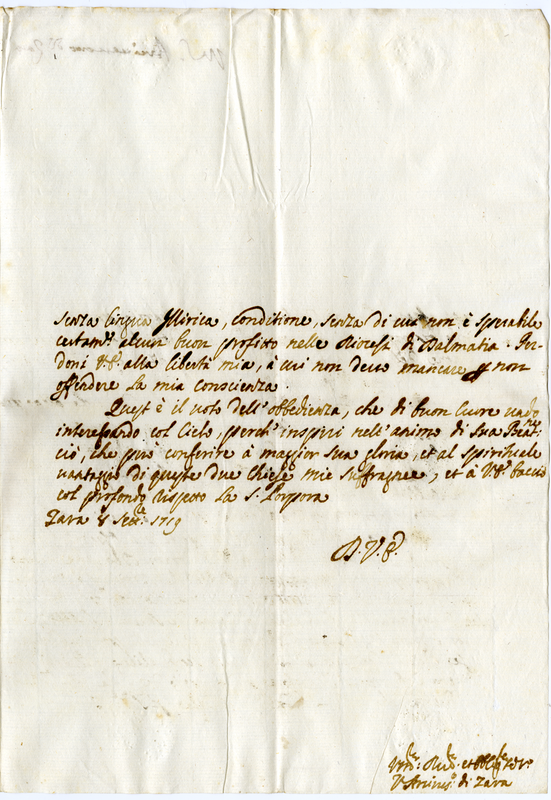 senza lingua Illirica, conditione, senza di cui non è sperabile
certam.te alcun buon profitto nelle Diocesi di Dalmatia. Per-
doni V.E. alla libertà mia, à cui non devo mancare p non
offendere la mia conscienza.
Quest' è il voto dell' obbedienza, che di buon Cuore vado
interessando col Cielo, perch' inspiri nell' animo di Sua Beat.ne
ciò, che può conferire à maggior sua gloria, et al spirituale
vantaggio di queste due Chiese mie suffraganee, et à V.E. baccio
col profondo rispetto la S. Porpora
Zara 8 Sett.e 1719
D. V. E.
Um.o et
L'Arcives.o di Zara